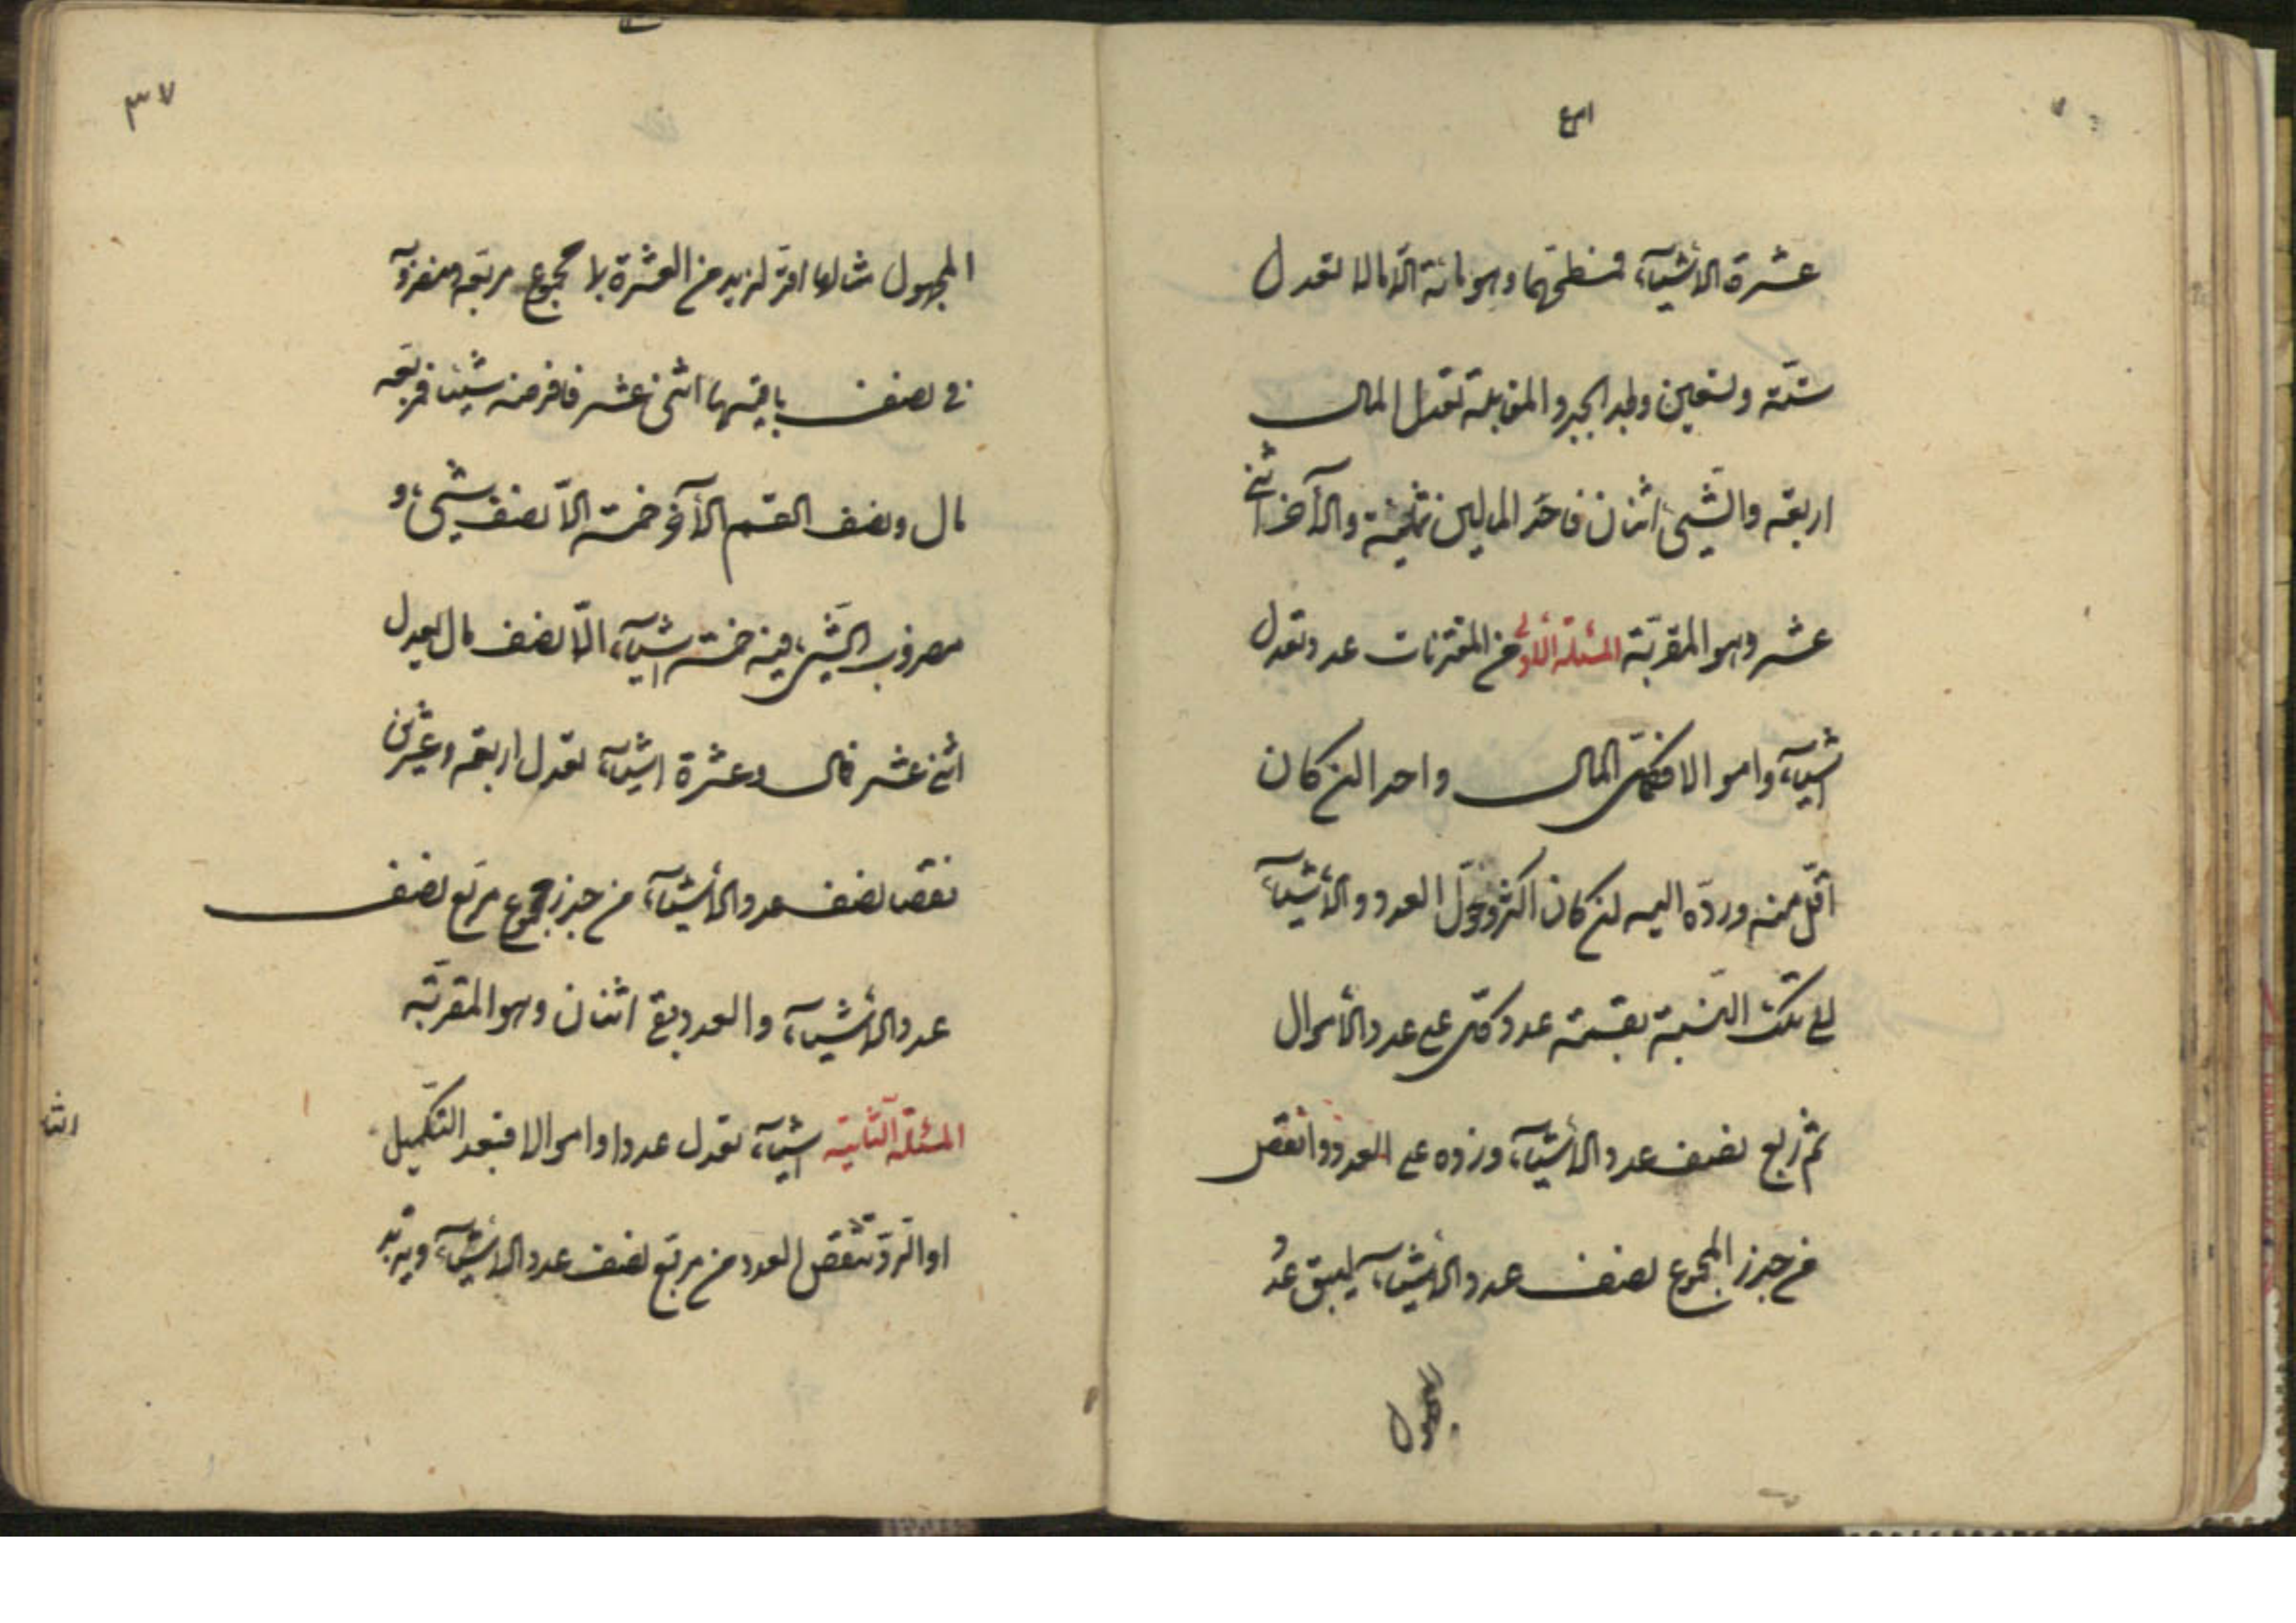 عشرة الا شيئا، فسطحهما وهو مائة الا مالا تعدل
ستة وتسعين وبعد الجبر والمقابلة تعدل المال
اربعة والشيئ اثنان فاحد المالين ثمانية والآخر اثنى
عشر وهو المقر به المسئلة الاولى من المقترنات عدد تعدل
اشياء، واموالا فكمل المال واحدا ان كان
اقل منه ورده اليه ان كان اكثر وحول العدد والأشياء
الى تلك النسبة بقسمة عدد كل على عدد الأموال
ثم ربع نصف عدد الأشياء، وزده على العدد وانقص
من جذر المجموع نصف عدد الأشياء، ليبقى عدد
المجهول
٣٧
المجهول مثالها اقر لزيد من العشرة بما مجموع مربعه ومضروبه
فى نصف باقيها اثنى عشر فافرضه شيئا فمربعه
مال ونصف القسم الآخر خمسة الا نصف شيئ، و
مضروب الشيئ فيه خمسة اشياء، الا نصف مال يعدل
اثنى عشر فمال وعشرة اشياء، تعدل اربعة وعشرين
نقصنا نصف عدد الأشياء، من جذر مجموع مربع نصف
عدد الأشياء، والعدد بقى اثنان وهو المقر به
المسئلة الثانية اشياء، تعدل عددا واموالا فبعد التكميل
او الرد تنقص العدد من مربع نصف عدد الأشياء، ويزيد